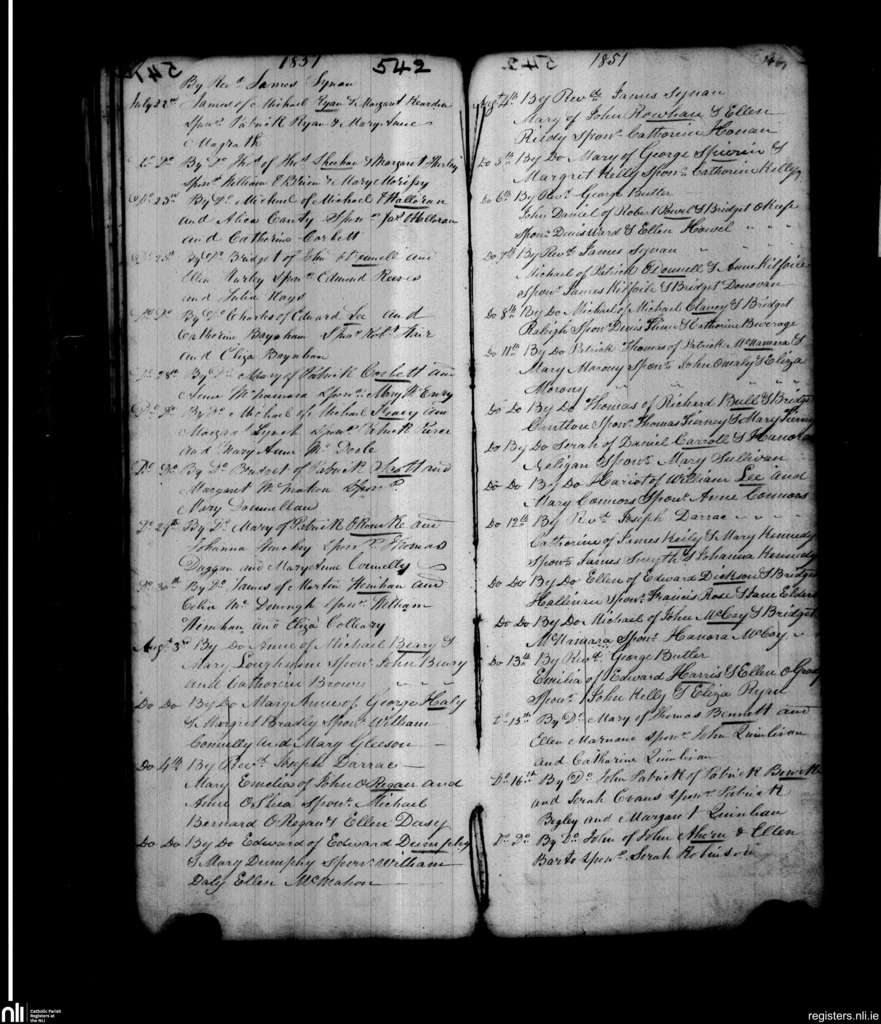 1851
542
By Revd. James Synan
July 22nd James of Michael Ryan & Margaret Reardon
Sponr. Patrick Ryan & Mary Anne
Magrath
Do Do By Do Thos. of Thos. Sheehan & Margaret Hurley
Sponr. William O Brien & Mary Morissy
Do 23rd By Do Michael of Michael O Halloran
and Alice Canty Sponr. Jas. O Halloran
and Catherine Corbett
Do 25th By Do Bridget of John O Donnell and
Ellen Hurley Sponr. Edmund Reeves
and Julia Hays
Do Do By Do Charles of Edward Lee and
Catherine Baynham Sponr. Robt.
and Eliza Baynham
Do 28th By Do Mary of Patrick Corbett and
Anne McNamara Sponr. Mary McEnry
Do Do By Do Michael of Michael and
Margaret Lynch Sponr. Patrick
and Mary Anne
Do Do By Do Bridget of Patrick Scott and
Margaret McMahon Sponr.
Mary Donnellan
Do 29th By Do Mary of Patrick O Rourke and
Johanna Sponr. Thomas
Duggan and Mary Anne Connelly
Do 30th By Do James of Martin Henihan and
Celia Mc Sponr. William
Henihan and Eliza Colleary
Augt. 3rd By Do Anne of Michael Beary &
Mary Loughnane Sponr. John Beary
and Catherine Browne
Do Do By Do Mary Anne of George Haly
& Margret Brady Sponr. William
Connelly and Mary Gleeson
Do 4th By Revd. Joseph Darrac
Mary Emelia of John O Regan and
Anne O Shea Sponr. Michael
Bernard O Regan & Ellen Dasy
Do Do By Do Edward of Edward Dumphy
& Mary Dumphy Sponr. William
Daly Ellen McMahon
1851
Augt. 4th By Revd. James Synan
Mary of John & Ellen
Reidy Sponr. Catherine Honan
Do 5th By Do Mary of George Spierin &
Margret Kelly Sponr. Catherin Kelly
Do 6th By Revd. George Butler
John Daniel of Robert & Bridget O Keefe
Sponr. Denis Ward & Ellen
Do 7th By Revd. James Synan
Michael of Patrick O Donnell & Anne Kilfoile
Sponr. James Kilfoile & Bridget Donovan
Do 8th By Do Michael of Michael Clancy & Bridget
Raleigh Sponr. Denis & Catherine Beverage
Do 11th By Do Patrick Thomas of Patrick McNamara &
Mary Marony Sponr. John & Eliza
Morony
Do Do By Do Thomas of Richard Bull & Bridget
Sponr. Thomas Tierney & Mary Tierney
Do By Do Serah of Daniel Carroll & Hanora
Neligan Sponr. Mary Sullivan
Do Do By Do Hariot of William Lee and
Mary Connors Sponr. Anne Connors
Do 12th By Revd. Joseph Darrac
Catherine of James Keily & Mary Kennedy
Sponr. James Smyth & Johanna Kennedy
Do Do By Do Ellen of Edward Dickson & Bridget
Hallinan Sponr. Francis Rose & Jane Elders
Do Do By Do Michael of John McCoy & Bridget
McNamara Sponr. Hanora McCoy
Do 13th By Revd. George Butler
Emilia of Edward Harris & Ellen O Grady
Sponr. John Kelly & Eliza Ryan
Do 15th By Do Mary of Thomas Bennett and
Ellen Marnane Sponr. John Quinlivan
and Catharine Quinlivan
Do 16th By Do John Patrick of Patrick
and Serah Evans Sponr. Patrick
Begley and Margaret Quinlivan
Do Do By Do John of John Ahern & Ellen
Barto Sponr. Serah Robinson
nli
Catholic Parish
Registers at
the NLI
registers.nli.ie